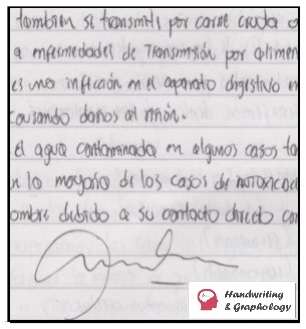 también se transmite por carne cruda o
a enfermedades de Transmisión por alimen
es una infección en el aparato digestivo
causando daños al riñón.
el agua contaminada en algunos casos ta
la mayoría de los casos de
ombre debido a su contacto directo con
Handwriting
& Graphology